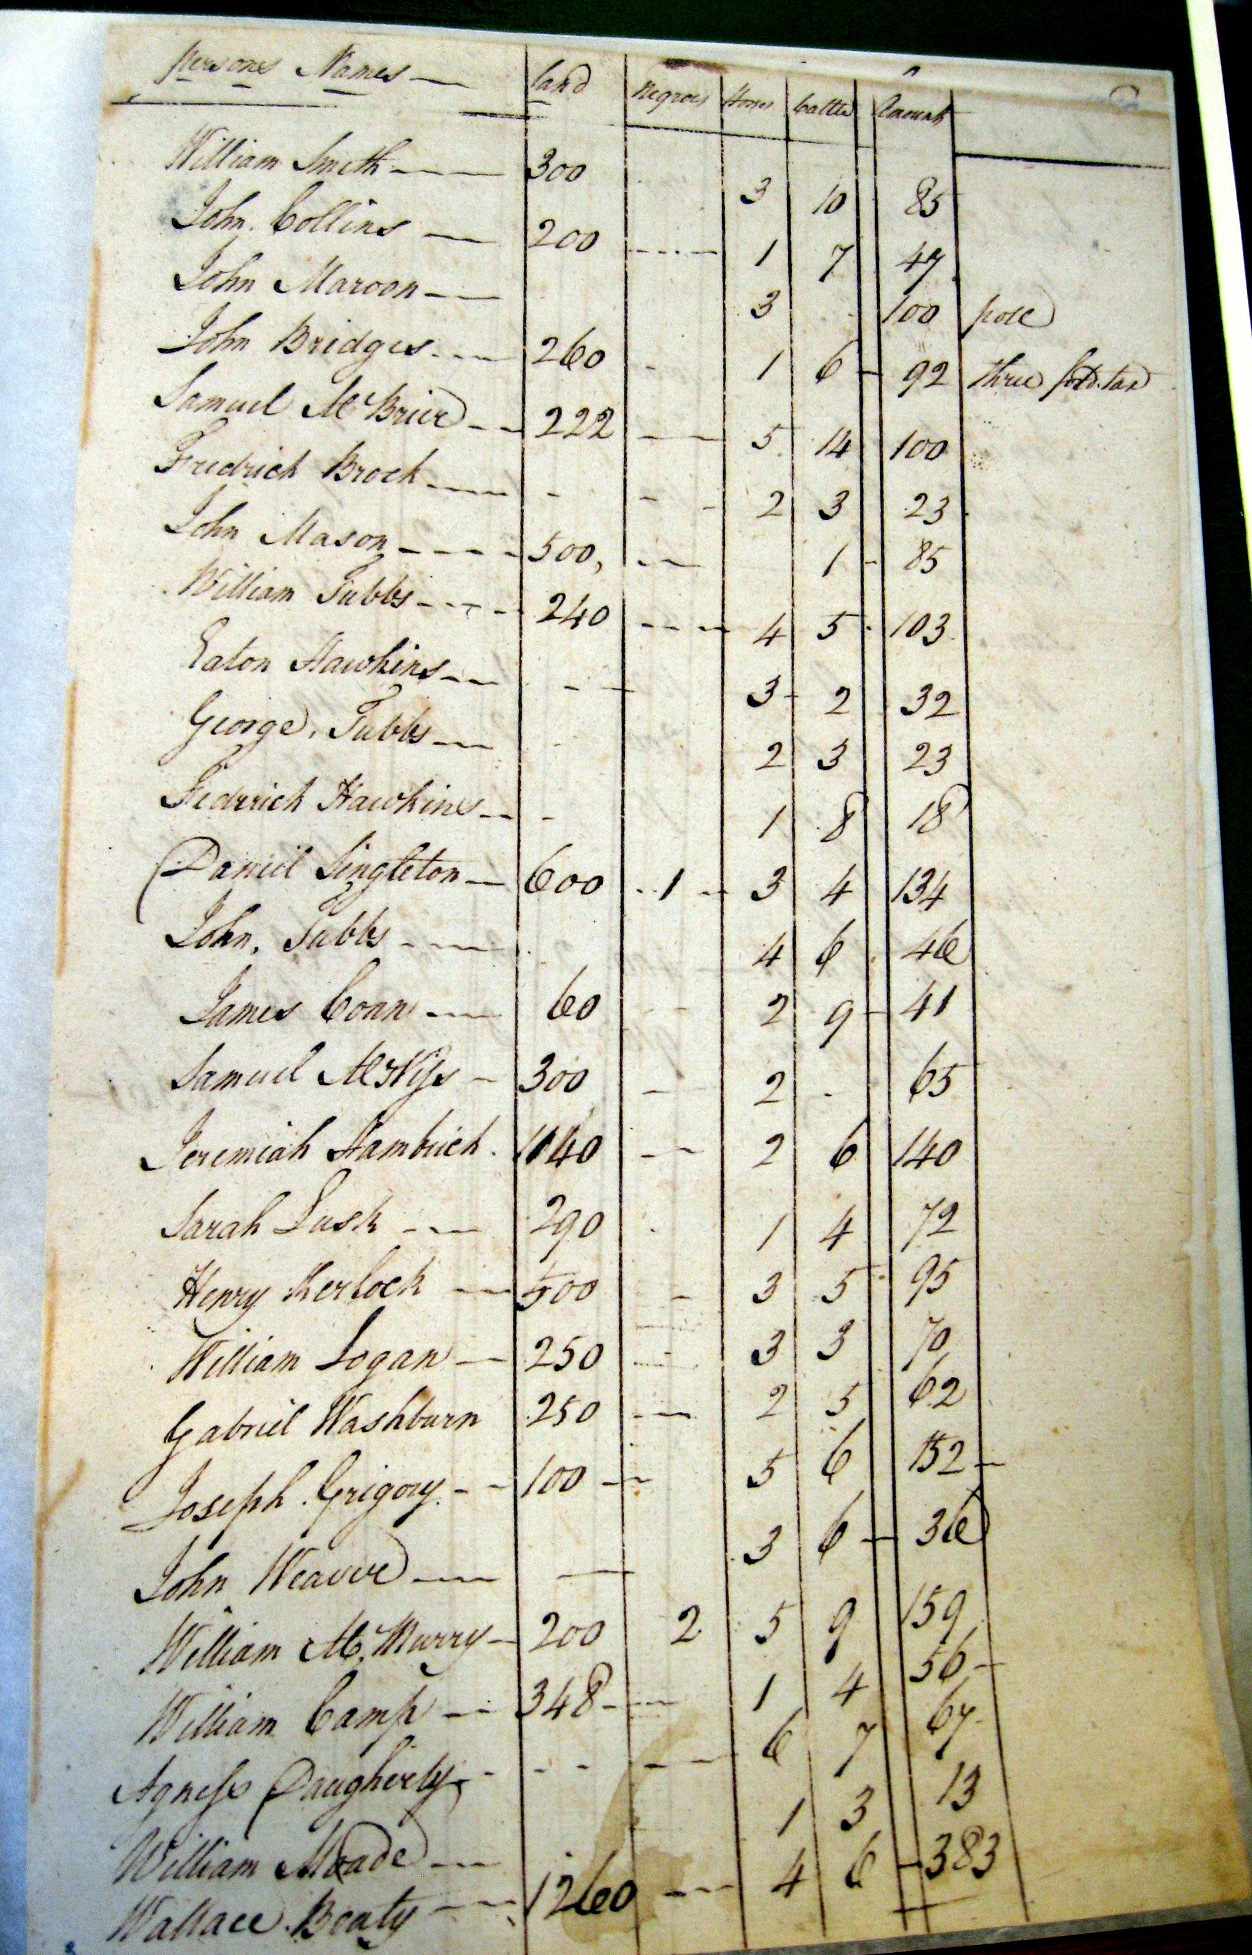 persons Names land Negroes Horses Cattle Amount
William Smith 300 3 10 85
John Collins 200 1 7 47
John Maroon 3 100 pole
John Bridges 260 1 6 92 three fold tax
Samuel McBrier 222 5 14 100
Fredrick Brock 2 3 23
John Mason 500 1 85
William Tubbs 240 4 5 103
Eaton Hawkins 3 2 32
George Tubbs 2 3 23
Fedrick Hawkins 1 8 18
Daniel Singleton 600 1 3 4 134
John Tubbs 4 6 46
James Coan 60 2 9 41
Samuel 300 2 65
Jeremiah Hambrick 1040 2 6 140
Sarah Lusk 290 1 4 72
Henry Kerlock 500 3 5 95
William Logan 250 3 3 70
Gabriel Washburn 250 2 5 62
Joseph Grigory 100 5 6 152
John Weaver 3 6 36
William McMurry 200 2 5 9 159
William Camp 348 1 4 56
Agness Daugherty 6 7 67
William Meade 1 3 13
Wallace Beaty 1260 4 6 383